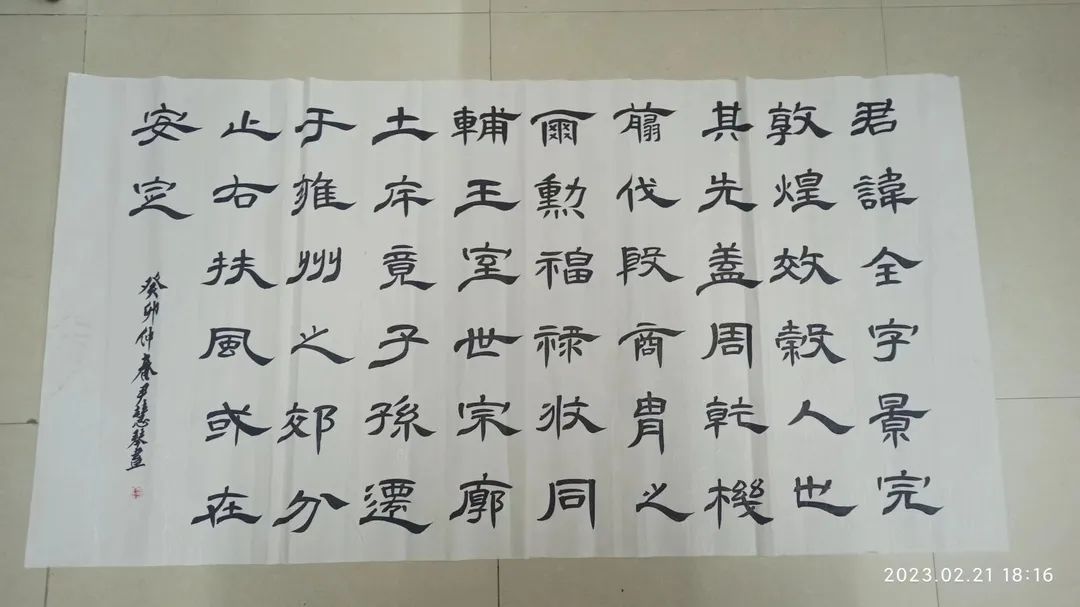 君諱全字景完
敦煌效穀人也
其先蓋周乾機
翦伐殷商胄之
爾勳福祿攸同
輔王室世宗廓
土斥竟子孫遷
于雍州之郊分
止右扶風或在
安定
癸卯仲春尹慧琴書
2023.02.21 18:16